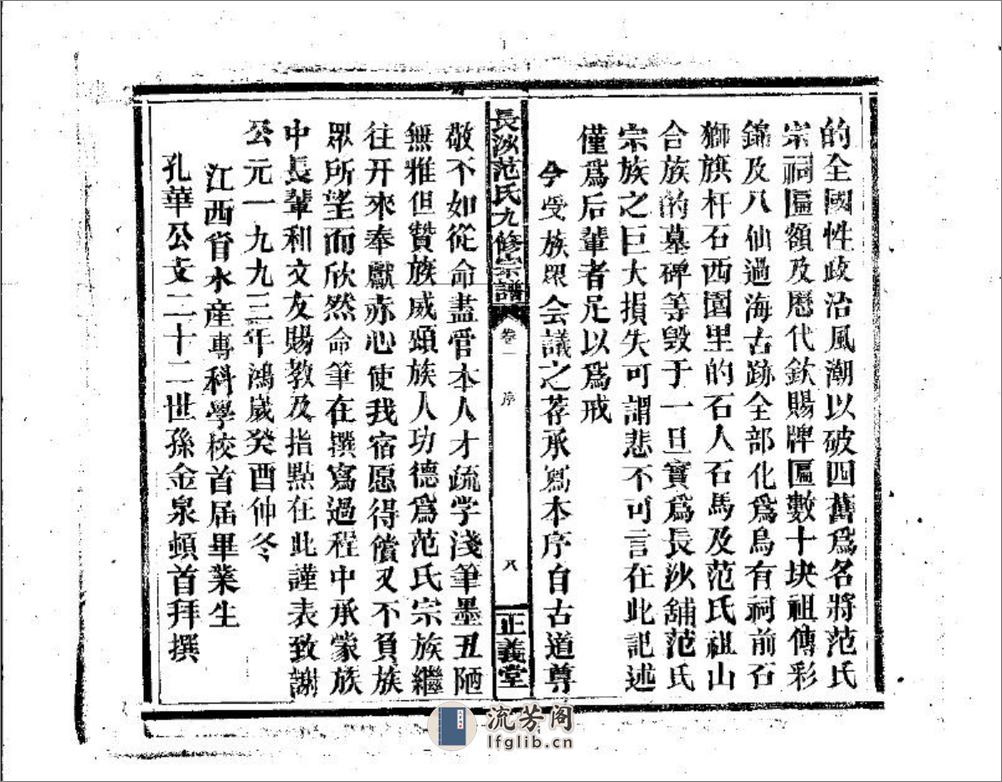 的全國性政治風潮以破四舊爲名將范氏
宗祠匾額及歷代欽賜牌匾數十块祖傳彩
錦及八仙過海古跡全部化爲烏有祠前石
獅旗杆石西園里的石人石馬及范氏祖山
合族的墓碑等毀于一旦實爲長沙舖范氏
宗族之巨大損失可謂悲不可言在此記述
僅爲后輩者足以爲戒
今受族眾会議之荐承寫本序自古道尊
長沙范氏九修宗譜
卷一
序
八
正義堂
敬不如從命盡管本人才疏学淺筆墨丑陋
無雅但贊族威頌族人功德爲范氏宗族繼
往开來奉獻赤心使我宿愿得償又不負族
眾所望而欣然命筆在撰寫過程中承蒙族
中長輩和文友賜教及指點在此謹表致謝
公元一九九三年鴻歲癸酉仲冬
江西省水產專科學校首届畢業生
孔華公支二十二世孫金泉頓首拜撰
流芳阁
lfglib.cn